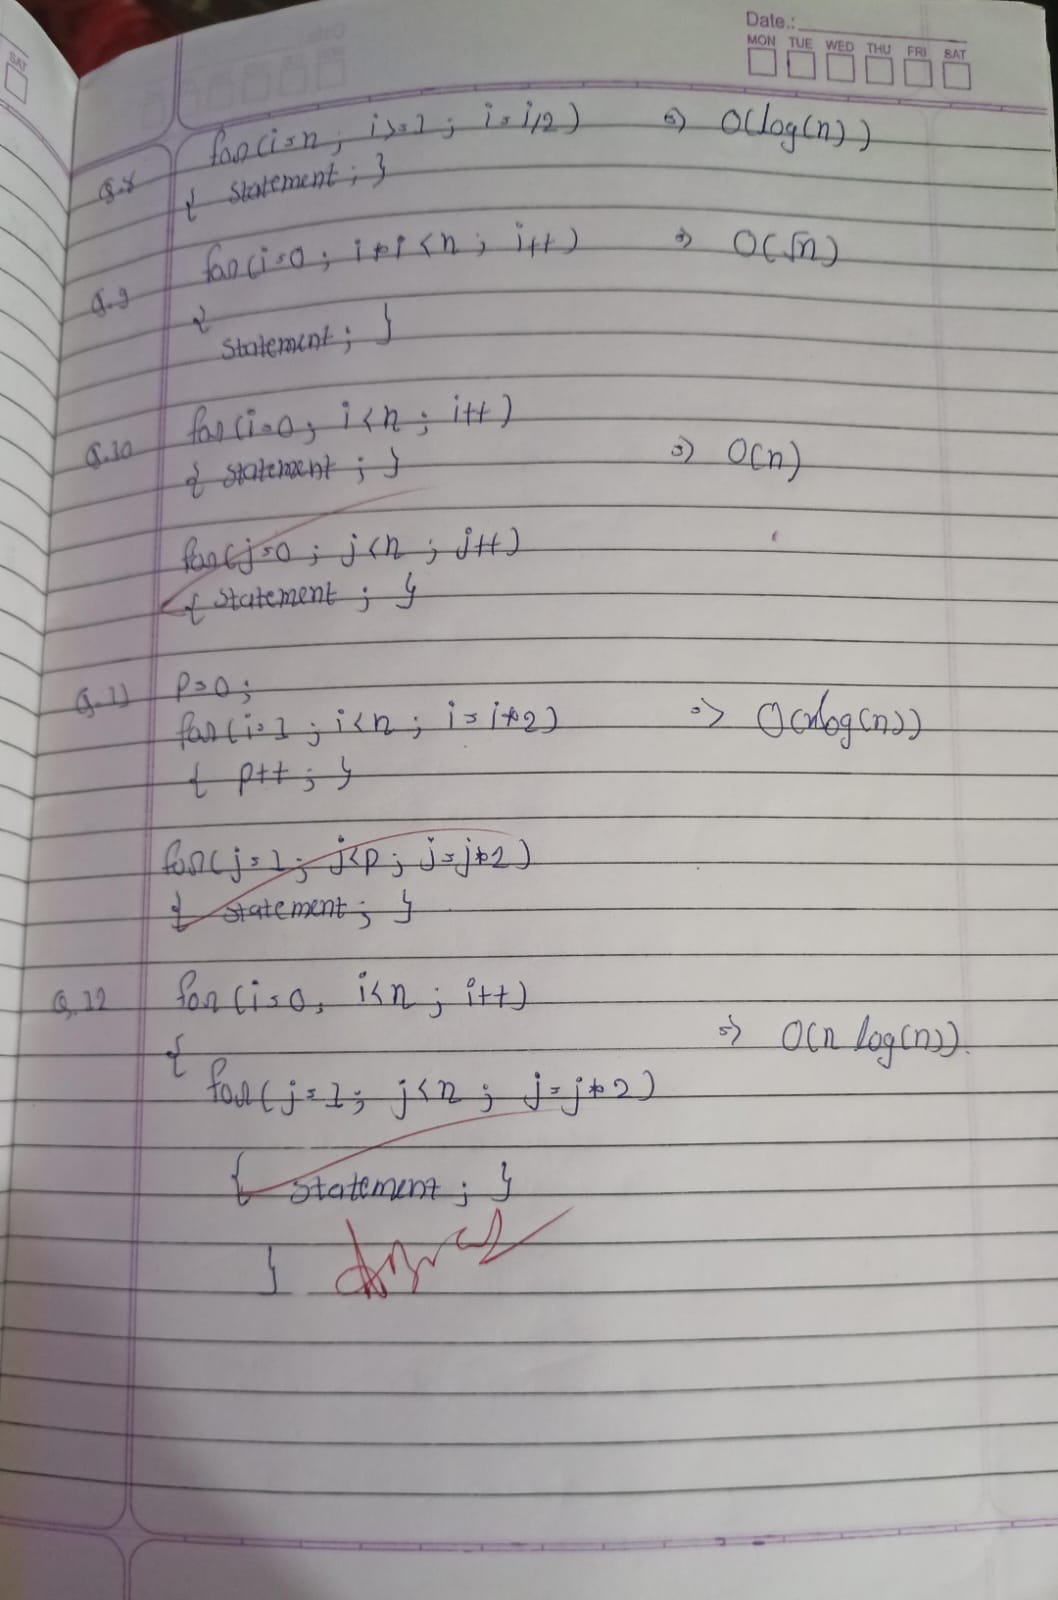 SAT
Date.:
MON TUE WED THU FRI SAT
Q.8 for(i=n ; i>=1 ; i=i/2) => O(log(n))
{ statement ; }
Q.9 for(i=0 ; i*i<n ; i++) => O(√n)
{
statement ; }
Q.10 for(i=0 ; i<n ; i++)
{ statement ; } => O(n)
for(j=0 ; j<n ; j++)
{ statement ; }
Q.11 P=0 ;
for(i=1 ; i<n ; i=i*2) => O(nlog(n))
{ p++ ; }
for(j=1 ; j<p ; j=j*2)
{ statement ; }
Q.12 for(i=0, i<n ; i++)
{ => O(n log(n)).
for(j=1 ; j<n ; j=j*2)
{ statement ; }
}